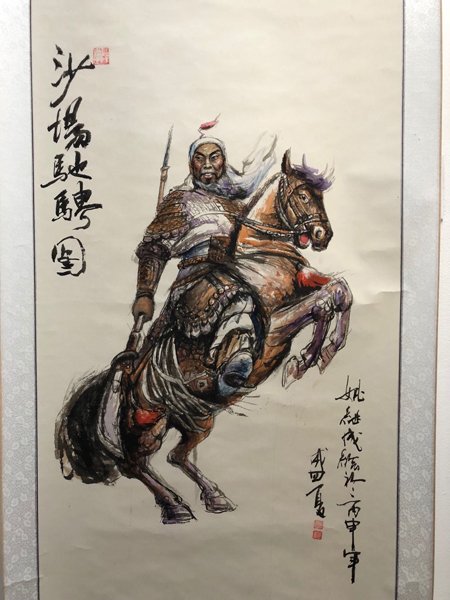 沙場馳騁圖
姚继成绘 丙申年
盛夏